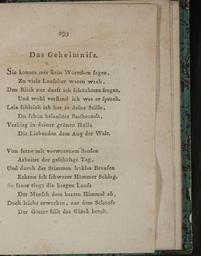 299
Das Geheimniß.
Sie konnte mir kein Wörtchen sagen,
Zu viele Lauscher waren wach,
Den Blick nur durft ich schüchtern fragen,
Und wohl verstand ich was er sprach.
Leis schleich ich her in deine Stille,
Du schön belaubtes Buchenzelt,
Verbirg in deiner grünen Hülle
Die Liebenden dem Aug der Welt.
Von ferne mit verworrnem Sausen
Arbeitet der geschäftge Tag,
Und durch der Stimmen hohles Brausen
Erkenn ich schwerer Hämmer Schlag.
So sauer ringt die kargen Loose
Der Mensch dem harten Himmel ab,
Doch leicht erworben, aus dem Schoose
Der Götter fällt das Glück herab.